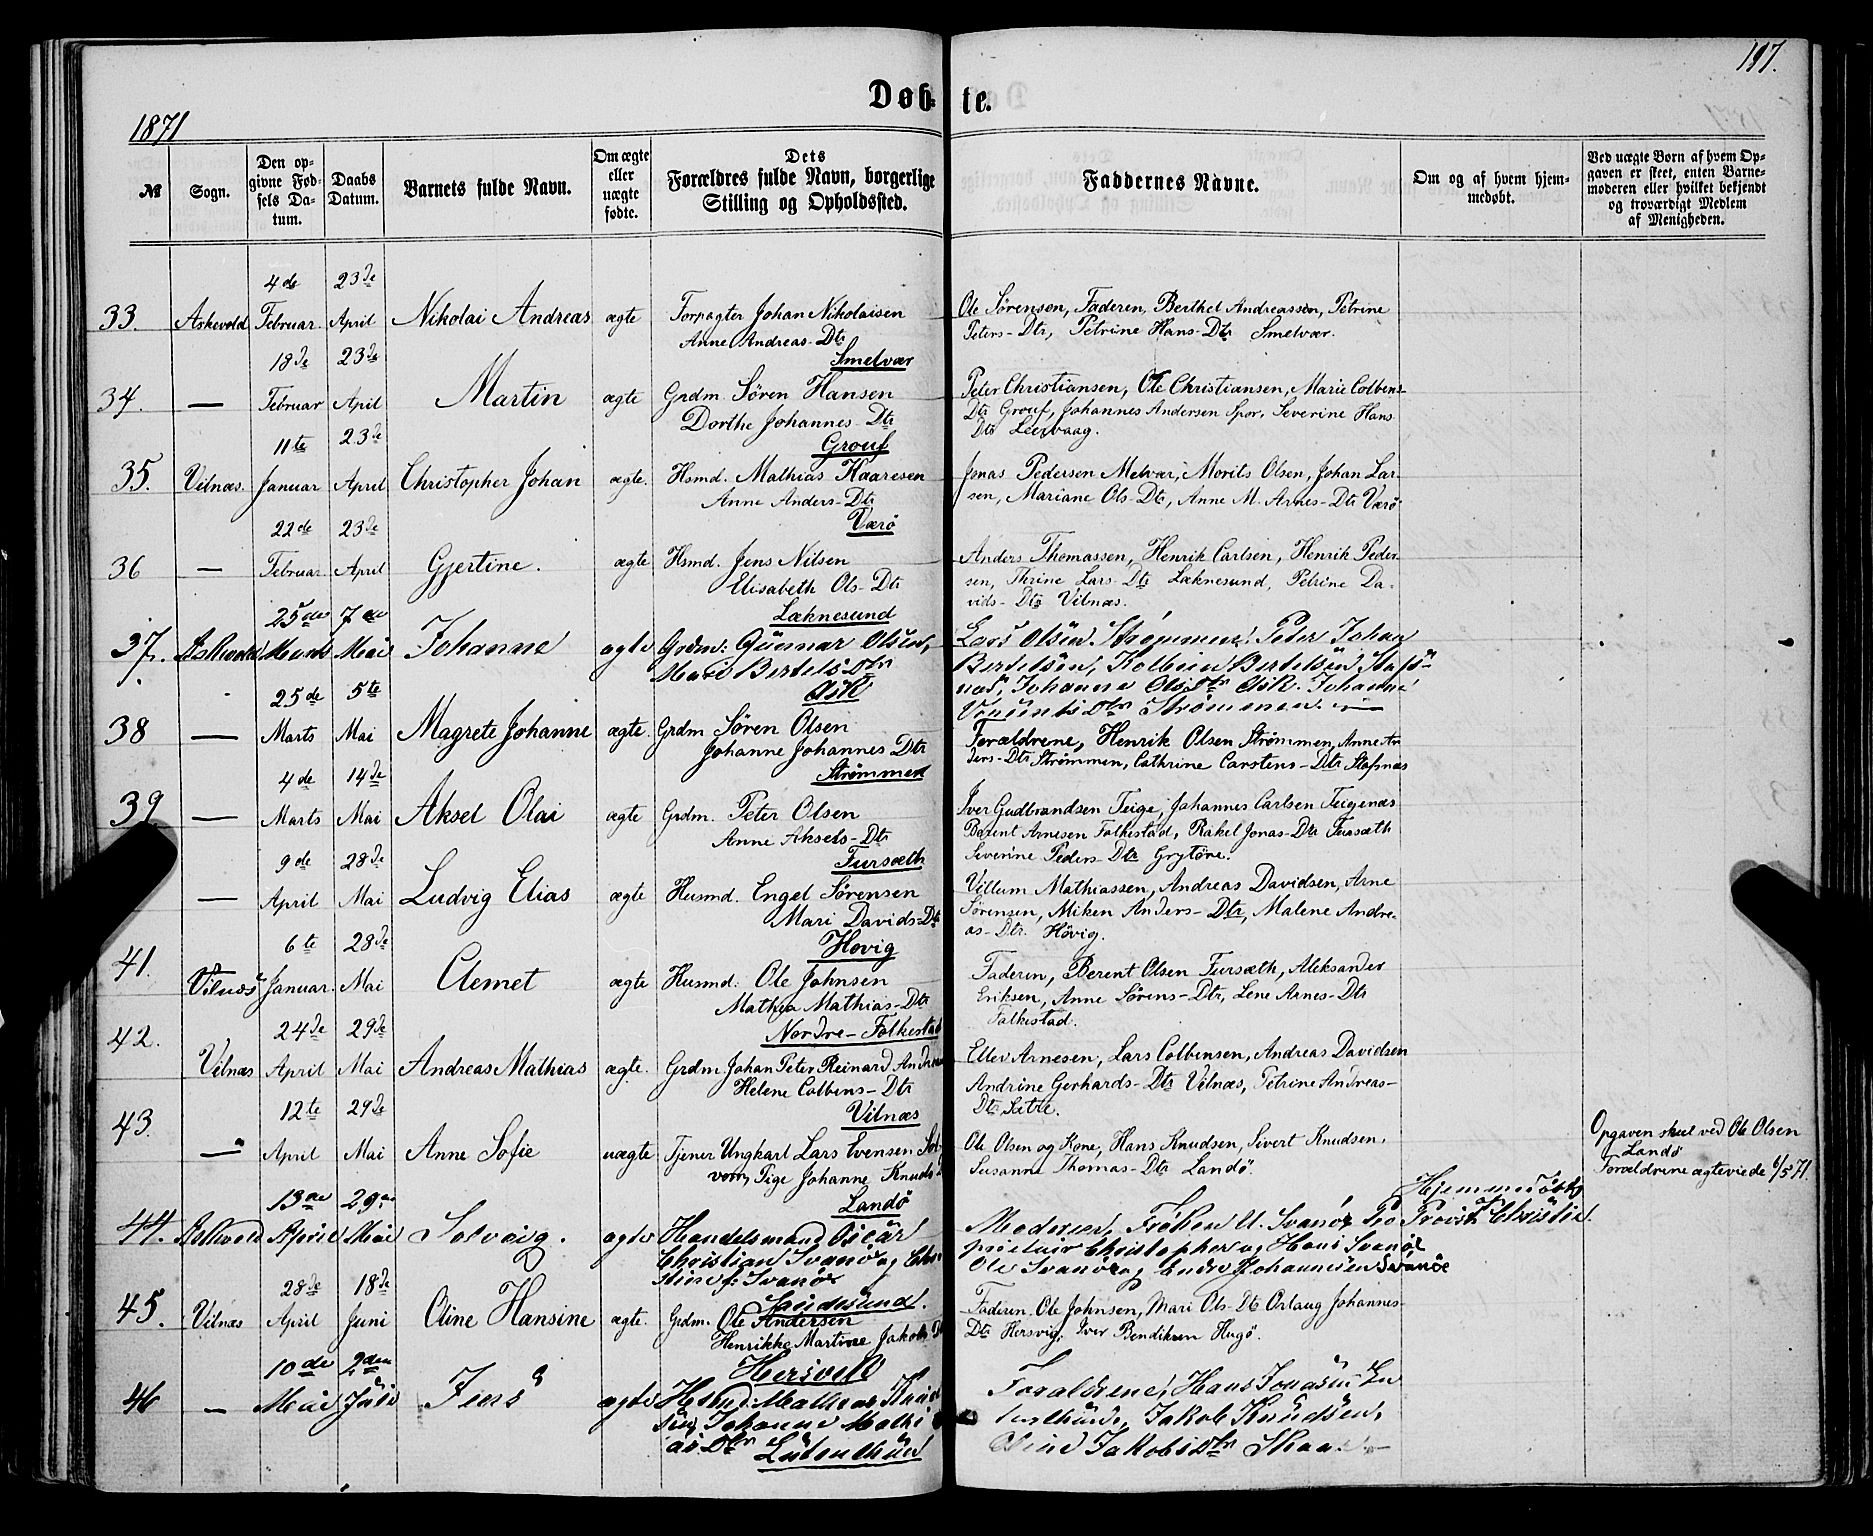 197.
Døbte.
1871
№
Sogn.
Den op-
givne Fød-
sels Da-
tum.
Daabs
Datum.
Barnets fulde Navn.
Om ægte
eller
uægte
fødte.
Dets
Forældres fulde Navn, borgerlige
Stilling og Opholdssted.
Faddernes Navne.
Om og af hvem hjem-
medøbt.
Ved uægte Børn af hvem Op-
gaven er skeet, enten Barne-
moderen eller hvilket bekjendt
og troværdigt Medlem
af Menigheden.
4de 23de
33. Askevold Februar April Nikolai Andreas ægte Forpagter Johan Nikolaisen
Anne Andreas-Dtr
Smelvær
Ole Sørensen, Faderen, Berthel Andreassen, Petrine
Peters-Dtr, Petrine Hans-Dtr Smelvær.
18de 23de
34. — Februar April Martin ægte Grdm Søren Hansen
Dorthe Johannes-Dtr
Grouf
Peter Christiansen, Ole Christiansen, Marie Colbens-
Dtr Grouf, Johannes Andersen Spor, Severine Hans
Dtr Leervaag.
11te 23de
35. Vilnæs Januar April Christopher Johan ægte. Hsmd. Mathias Haaresen
Anne Anders-Dtr
Værø
Jonas Pedersen Melvær, Morits Olsen, Johan Lar-
sen, Mariane Ols-Dtr, Anne M. Arnes-Dtr Værø
22de 23de
36 — Februar April Gjertine. ægte Hsmd. Jens Nilsen
Elisabeth Ols-Dtr
Læknesund
Anders Thomassen, Henrik Carlsen, Henrik Peder-
sen, Thrine Lars-Dtr Læknesund, Petrine Da-
vids-Dtr Vilnæs.
25de 7de
37. Askevold Marts Mai Johanne ægte Grdm: Gunnar Olsen,
Mari Bertels Dtr
Ask
Lars Olsen Strømmen, Peter Johan
Bertelsen, Kolbein Bertelsen Staf-
næs, Johanne Ols Dtr Ask. Johanne
Dtr Strømmen. —
25de 5te
38 — Marts Mai Magrete Johanne ægte. Grdm Søren Olsen
Johanne Johannes Dtr
Strømmen
Forældrene, Henrik Olsen Strømmen, Anne An-
ders-Dtr Strømmen, Cathrine Carstens-Dtr Stafnæs
4de 14de
39 — Marts Mai Aksel Olai ægte Grdm. Peter Olsen
Anne Aksels-Dtr
Fursæth
Iver Gudbrandsen Teige, Johannes Carlsen Teigenæs
Berent Arnesen Folkestad, Rakel Jonas-Dtr Fursæth
Severine Peders-Dtr Grytøre.
9de 28de
— April Mai Ludvig Elias ægte Husmd. Engel Sørensen
Mari Davids-Dtr
Hovig
Villum Mathiassen, Andreas Davidsen, Arne
Sørensen, Miken Anders-Dtr, Malene Andre-
as-Dtr. Høvig.
6te 28de
41. Vilnæs Januar Mai Clemet ægte Husmd. Ole Johnsen
Mathea Mathias-Dtr
Nordre-Folkestad
Faderen, Berent Olsen Fursæth, Aleksander
Eriksen, Anne Sørens-Dtr, Lene Arnes-Dtr
Falkestad.
24de 29de
42. Vilnæs April Mai Andreas Mathias ægte. Grdm Johan Peter Reinard
Helene Colbens-Dtr
Vilnæs
Ellev Arnesen, Lars Colbensen, Andreas Davidsen
Andrine Gerhards-Dtr Vilnæs, Petrine Andreas-
Dtr Sætre.
12te 29de
43. —" April Mai Anne Sofie uægte Tjener Ungkarl Lars Evensen
Pige Johanne Knuds
Landø
Ole Olsen og Kone, Hans Knudsen, Sivert Knudsen,
Susanne Thomas-Dtr Landø.
Opgaven skeet ved Ole Olsen
Landø
Forældrene ægteviede 6/5 71.
13de 29de
44. Askevold April Mai Solveig. ægte Handelsmand Oscar
Christian Svanøe og
f: Svanøe
Sandesund.
Moderen, Frøken U. Svanøe, Pro-
prietair Christopher og Hans Svanøe
Ole Svanøe og Endre Johannesen Svanøe
Hjemmedøbt
af
Provst Christie.
28de 18de
45. Vilnæs April Juni Oline Hansine ægte. Grdm. Ole Andersen
Henrikke Martine Jakobs
Hersvik
Faderen, Ole Johnsen, Mari Ols-Dtr Orlaug Johannes-
Dtr Hersvig, Iver Bendiksen Hugø.
10de 2den
46 — Mai Juli Jens ægte Hsmd: Mathias
Johanne Mathi
as Dtr
Forældrene, Hans Jonasen
Jakob Knudsen,
Oline Jakobs Dtr